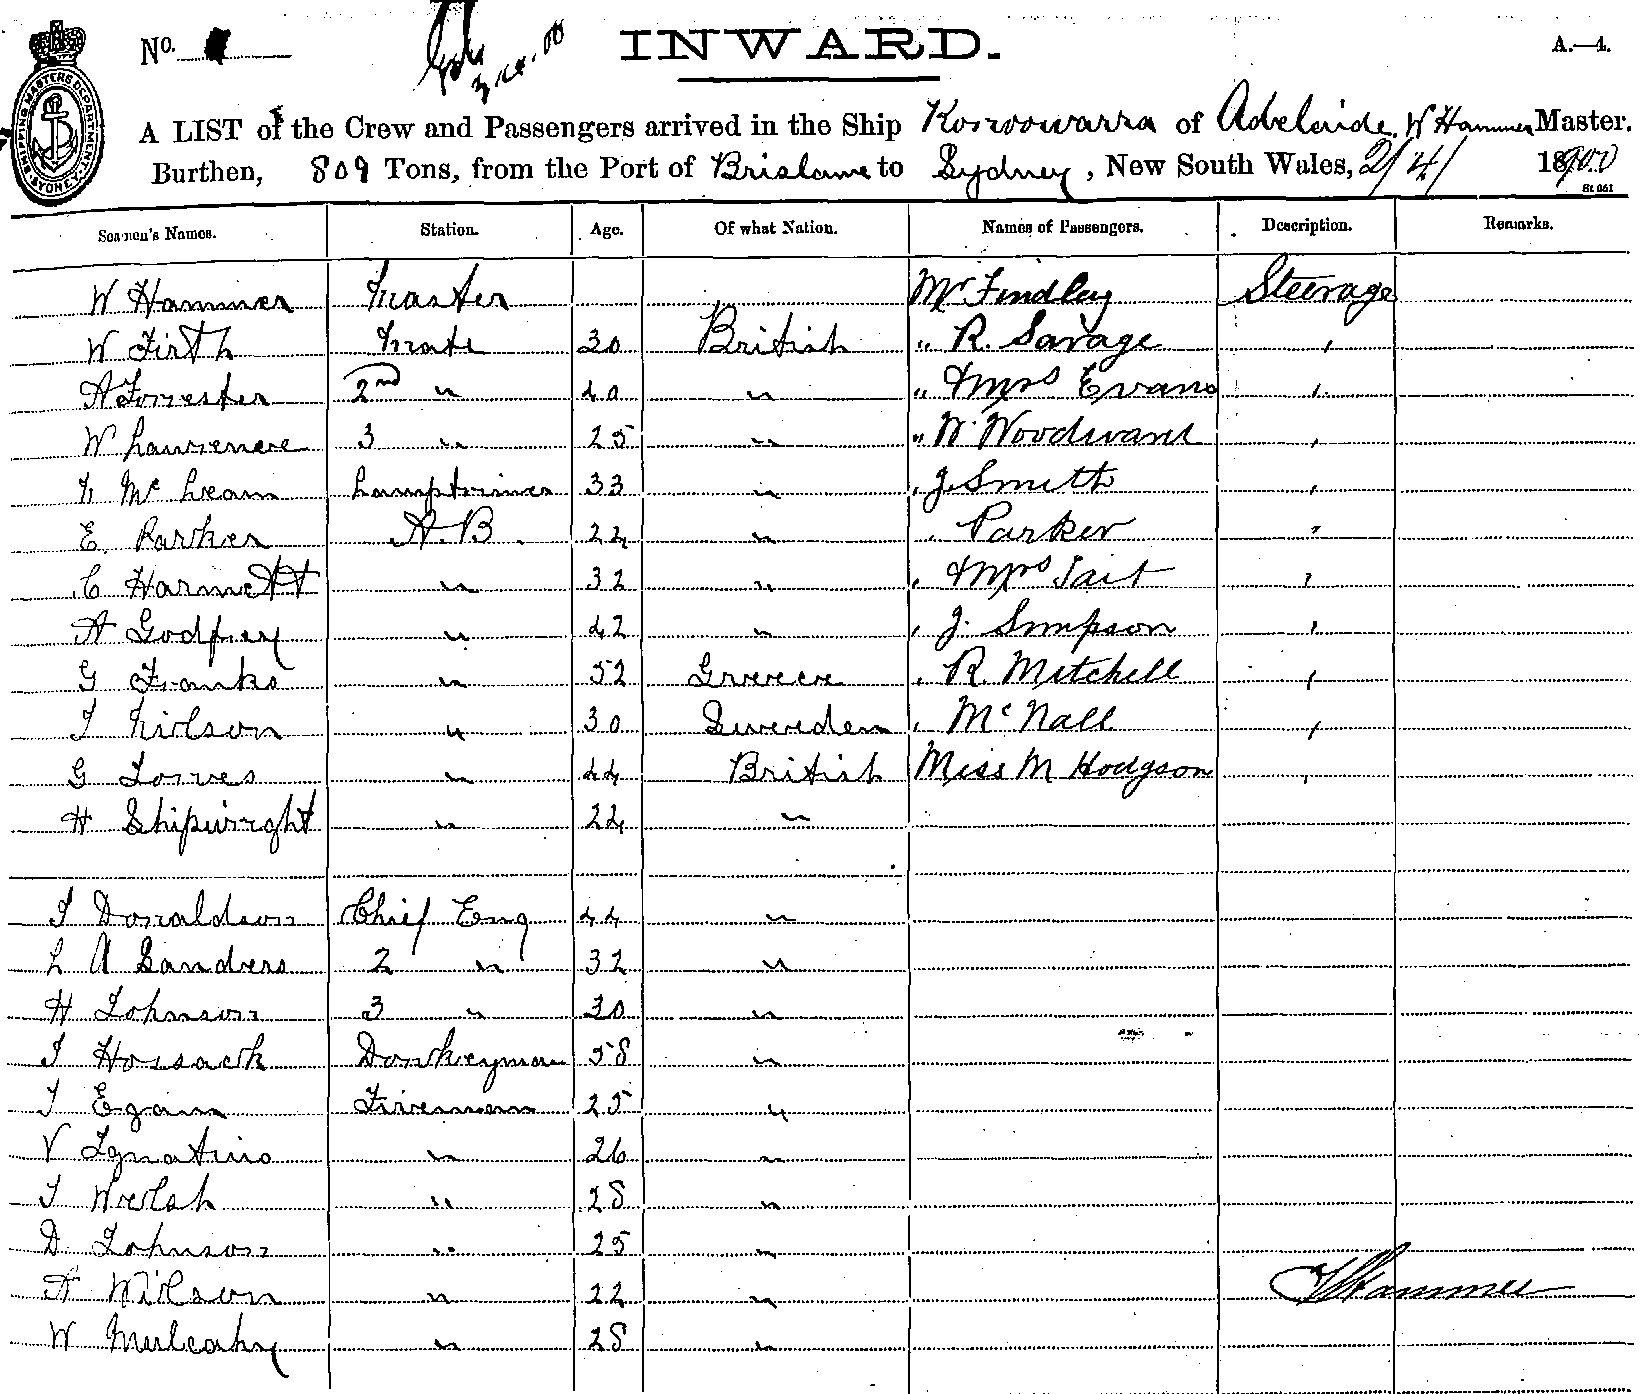 No. INWARD. A.—4.
A LIST of the Crew and Passengers arrived in the Ship Koowowarra of Adelaide, W Hammer Master.
Burthen, 809 Tons, from the Port of Brisbane to Sydney, New South Wales, 2/4/ 1900
SHIPPING MASTERS DEPARTMENT SYDNEY
Seamen's Names. Station. Age. Of what Nation. Names of Passengers. Description. Remarks.
W Hammer Master Mr Findley Steerage
W Firth Mate 30 British " R. Savage "
A Forrester 2nd " 40 " " & Mrs Evans "
W Lawrence 3 " 25 " " W. Woodward "
Mc Lean Lamptrimer 33 " " J. Smith "
E. Parker A.B. 22 " " Parker "
C Harnett " 32 " " & Mrs Tait "
A Godfrey " 42 " " J. Simpson "
G Franks " 52 Greece " R. Mitchell "
T Nielson " 30 Sweden " McNall "
G Torres " 44 British Miss M Hodgson "
H Shipwright " 22 "
J Donaldson Chief Eng 44 "
L A Sanders 2 " 32 "
H Johnson 3 " 30 "
J Hossack Donkeyman 58 "
J Egan Fireman 25 "
V Ignatius " 26 "
J Welsh " 28 "
D. Johnson " 25 "
A Wilson " 22 " W Hammer
W Mulcahy " 28 "